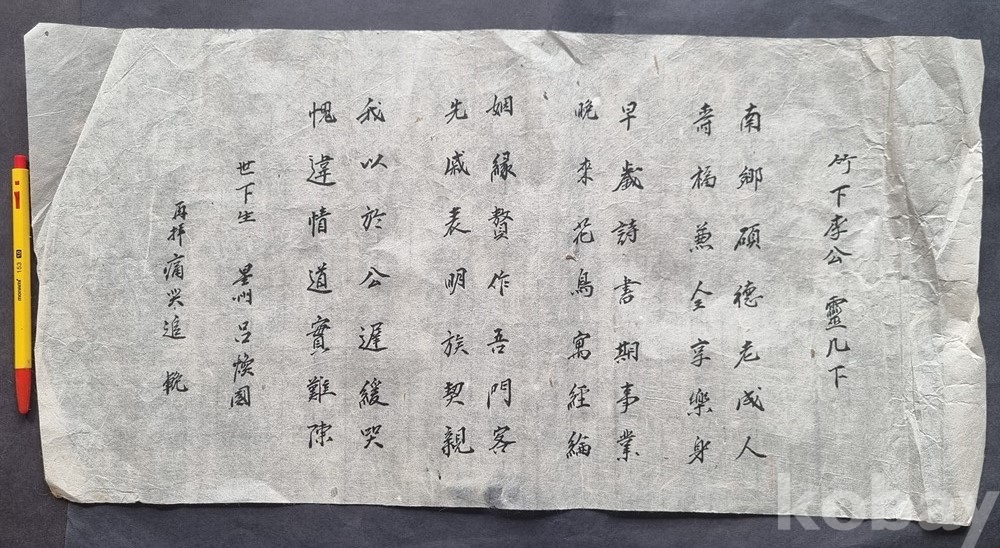 竹下李公 靈几下
南鄉碩德老成人
壽福兼全享樂身
早歲詩書期事業
晚來花鳥寓經綸
姻緣贅作吾門客
先戚表明族契親
我以於公遲緩哭
愧違情道實難陳
世下生 星州 呂煥國
再拜痛哭追 輓
monami 153
kobay